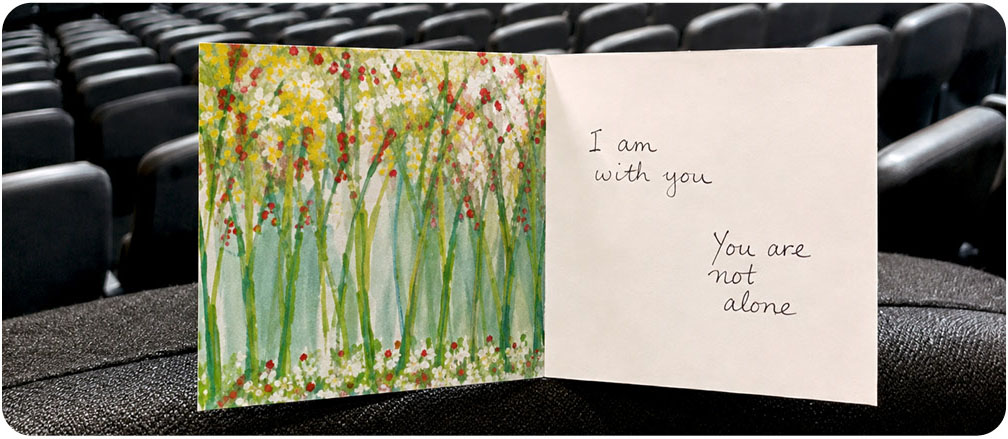 I am
with you
You are
not
alone